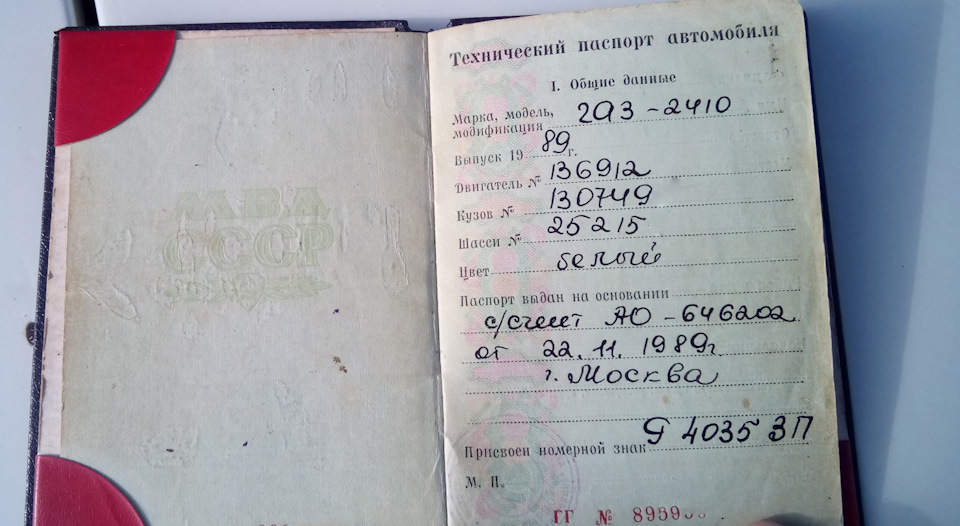 МВД
СССР
Технический паспорт автомобиля
I. Общие данные
Марка, модель,
модификация ГАЗ-2410
Выпуск 19 89 г.
Двигатель № 136912
Кузов № 130749
Шасси № 25215
Цвет белый
Паспорт выдан на основании
с/счет АО-646202
от 22.11.1989г
г. Москва
Присвоен номерной знак 4035 ЗП
М. П.
ГГ № 8959